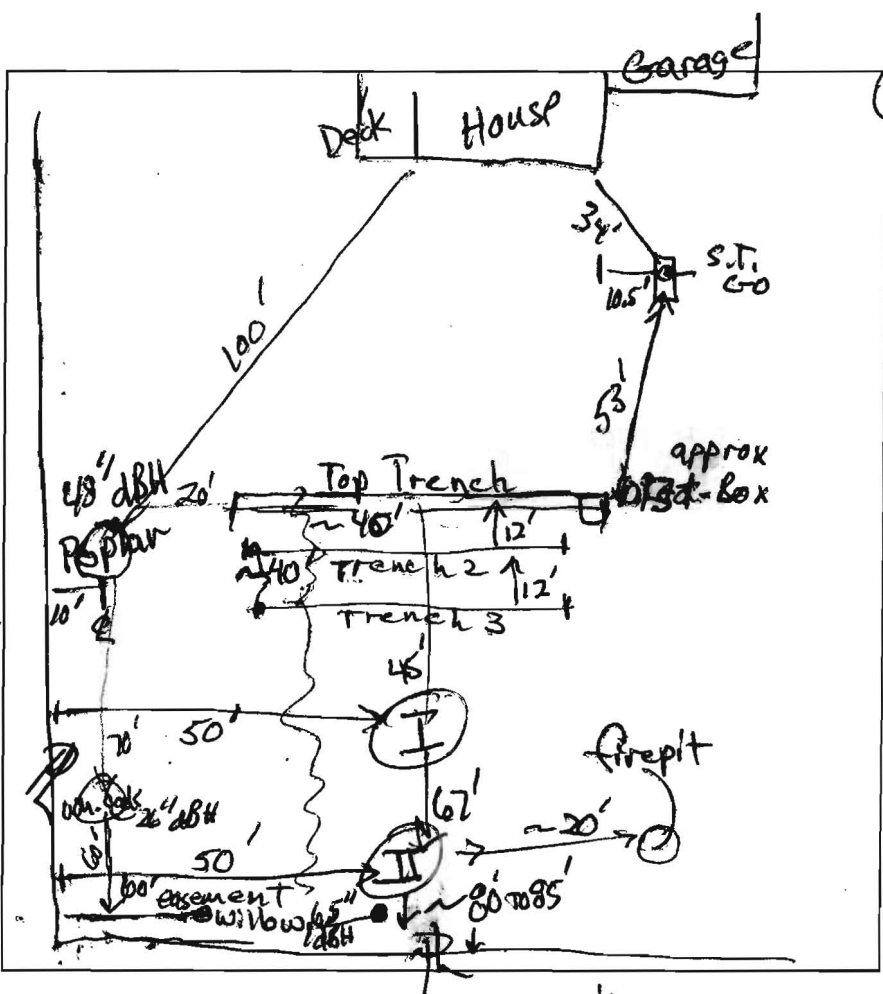 Garage
Deck
House
34'
S.T.
CO
10.5'
100'
53'
approx
Dist-Box
48" dBH
20'
Top Trench
Poplar
~40'
12'
~40'
Trench 2
12'
10'
Trench 3
45'
I
50'
70'
firepit
26" dBH
67'
~20'
60'
50'
II
60'
easement
willow
dBH
~80' to 85'